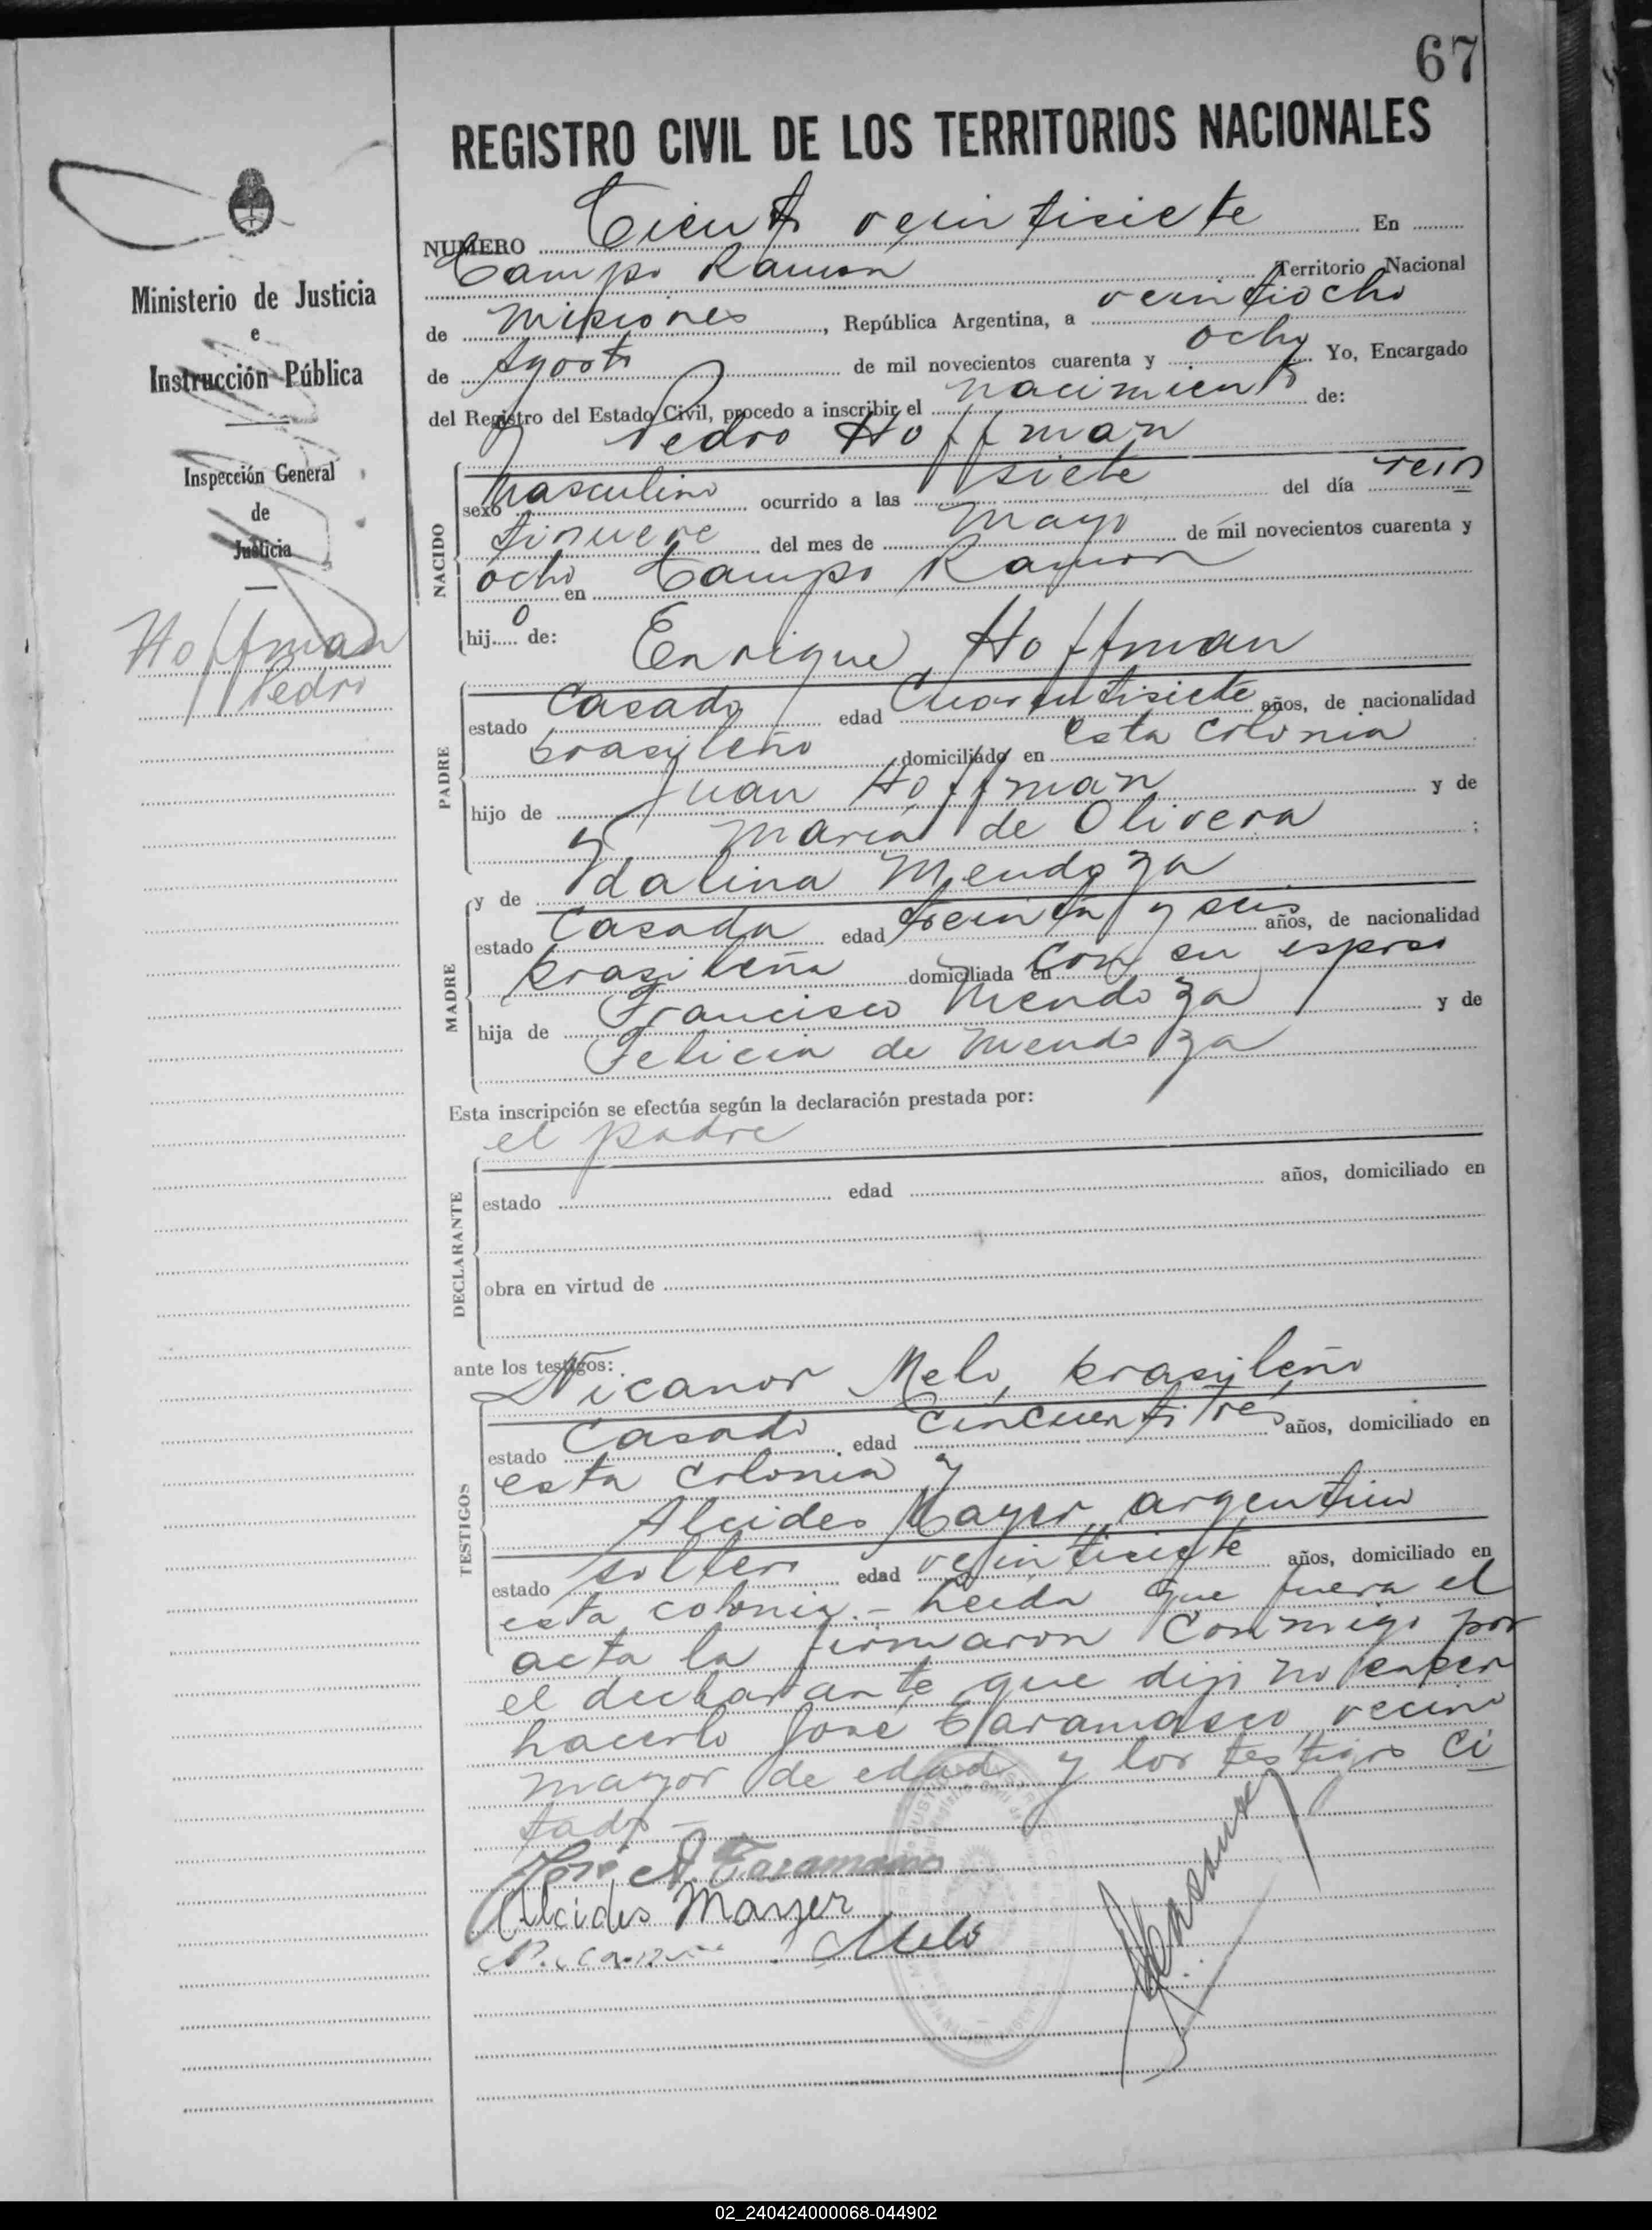 67
REGISTRO CIVIL DE LOS TERRITORIOS NACIONALES
Ministerio de Justicia
e
Instrucción Pública
Inspección General
de
Justicia
Hoffman
Pedro
NUMERO Ciento veintisiete En
Campo Ramon Territorio Nacional
de Misiones, República Argentina, a veintiocho
de Agosto de mil novecientos cuarenta y ocho Yo, Encargado
del Registro del Estado Civil, procedo a inscribir el nacimiento de:
Pedro Hoffman
NACIDO
sexo masculino ocurrido a las siete del día vein
tinueve del mes de Mayo de mil novecientos cuarenta y
ocho en Campo Ramon
hijo de: Enrique Hoffman
PADRE
estado Casado edad Cuarentisiete años, de nacionalidad
brasileño domiciliado en esta colonia
hijo de Juan Hoffman y de
Maria de Olivera;
y de Ydalina Mendoza
MADRE
estado Casada edad treinta y seis años, de nacionalidad
brasileña domiciliada en con su esposo
hija de Francisco Mendoza y de
Felicia de Mendoza
Esta inscripción se efectúa según la declaración prestada por:
el padre
DECLARANTE
estado edad años, domiciliado en
obra en virtud de
ante los testigos:
Nicanor Melo, brasileño
TESTIGOS
estado Casado edad cincuentitres años, domiciliado en
esta colonia y
Alcides Mayer, argentino
estado soltero edad veintisiete años, domiciliado en
esta colonia.- Leida que fuera el
acta la firmaron conmigo por
el declarante que dijo no saber
hacerlo José Caramasco, vecino
mayor de edad y los testigos ci
tados.-
José A.
Alcides Mayer
Nicanor Melo
02_240424000068-044902